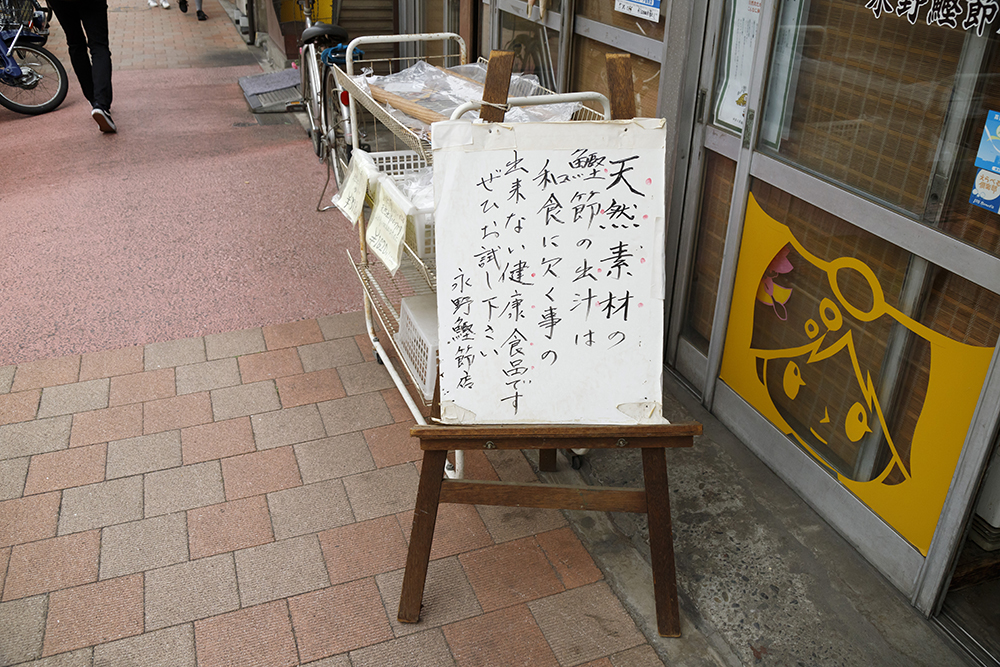 天然素材の
鰹節の出汁は
和食に欠く事の
出来ない健康食品です
ぜひお試し下さい
永野鰹節店
永野鰹節